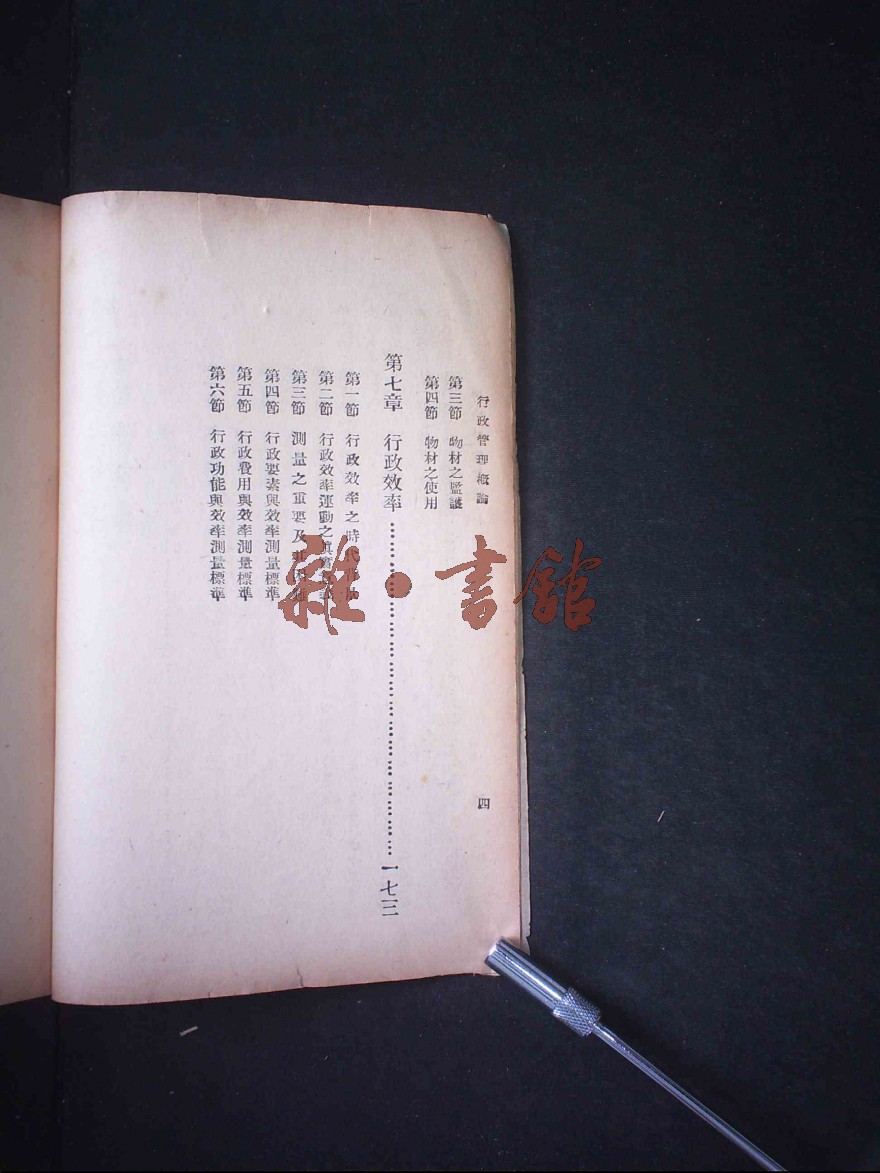 行政管理概論
四
第三節 物材之監護
第四節 物材之使用
第七章 行政效率……一七三
第一節 行政效率之時代
第二節 行政效率運動之眞
第三節 測量之重要及其困難
第四節 行政要素與效率測量標準
第五節 行政費用與效率測量標準
第六節 行政功能與效率測量標準
雜·書館